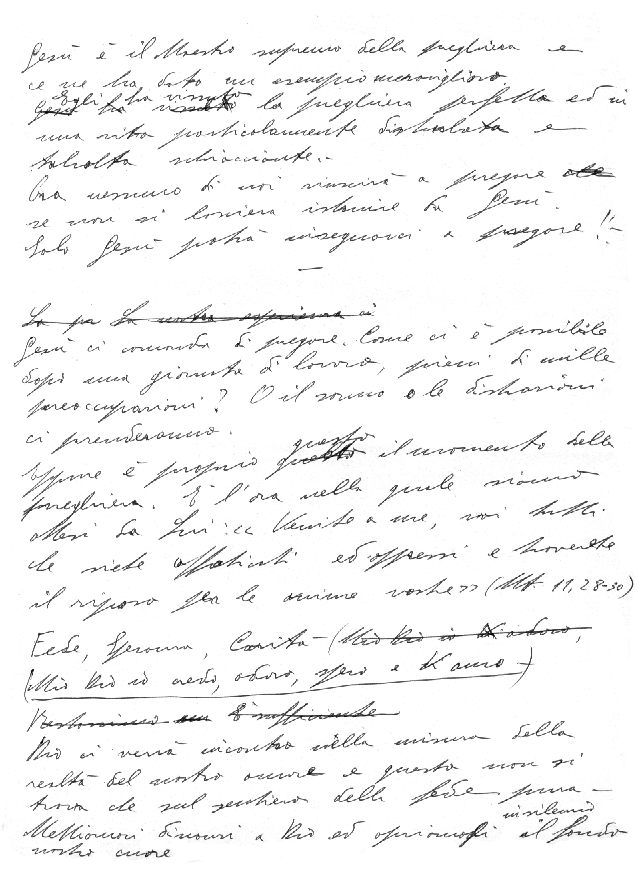 Gesù è il Maestro supremo della preghiera e
ce ne ha dato un esempio meraviglioso.
Egli ha vissuto
Gesù ha vissuto la preghiera perfetta ed in
una vita particolarmente disturbata e
talvolta schiacciante.-
Ora nessuno di noi riuscirà a pregare che
se non si lascerà istruire da Gesù.
Solo Gesù potrà insegnarci a pregare!!-
—
La pr La nostra esperienza ci
Gesù ci comanda di pregare. Come ci è possibile
dopo una giornata di lavoro, pieni di mille
preoccupazioni? O il sonno o le distrazioni
ci prenderanno.
questo
Eppure è proprio questo il momento della
preghiera. È l'ora nella quale siamo
attesi da Lui: << Venite a me, voi tutti
che siete affaticati ed oppressi e troverete
il riposo per le anime vostre >> (Mt. 11, 28-30)
Fede, Speranza, Carità - (Mio Dio io Ti adoro,
(Mio Dio io credo, adoro, spero e Ti amo -)
È sufficiente
Dio ci verrà incontro nella misura della
realtà del nostro amore e questo non si
trova che sul sentiero della fede pura -
in silenzio
Mettiamoci dinanzi a Dio ed apriamogli il fondo
nostro cuore